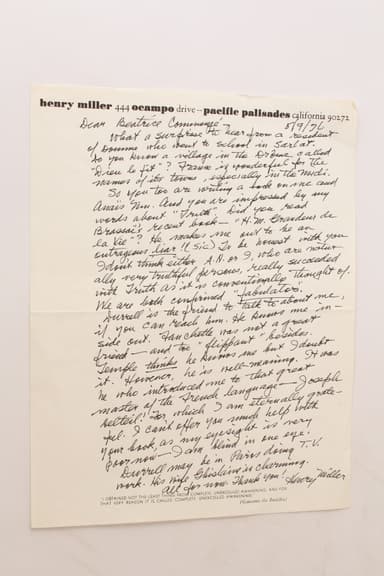 henry miller 444 ocampo drive – pacific palisades california 90272
5/9/76
Dear Beatrice Commengé –
What a surprise to hear from a resident
of Domme who went to school in Sarlat.
Do you know a village in the Drôme called
"Dieu le fit"? France is wonderful for the
names of its towns, especially in the Midi.
So you too are writing a book on me and
Anaïs Nin. And you are impressed by my
words about "Truth". Did you read
Brassaï's recent book – "H.M. Grandeur de
la Vie"? He makes me out to be an
outrageous liar! (Sic) To be honest with you
I don't think either A.N. or I, who are natur-
ally very truthful persons, really succeeded
with Truth as it is conventionally thought of.
We are both confirmed "fabulators".
Durrell is the friend to talk to about me,
if you can reach him. He knows me in-
side out. Fanchette was not a great
friend – and too "flippant" besides.
Temple thinks he knows me but I doubt
it. However, he is well-meaning. It was
he who introduced me to that great
master of the French language – Joseph
Delteil! For which I am eternally grate-
ful. I can't offer you much help with
your book, as my eyesight is very
poor now – I am blind in one eye.
Durrell may be in Paris doing T.V.
work. His wife Ghislaine is charming.
All for now. Thank you! Henry Miller
"I OBTAINED NOT THE LEAST THING FROM COMPLETE, UNEXCELLED AWAKENING, AND FOR
THAT VERY REASON IT IS CALLED COMPLETE, UNEXCELLED AWAKENING."
(Gautama the Buddha)